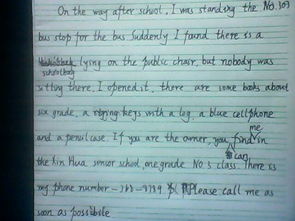 On the way after school, I was standing the No.307
bus stop for the bus Suddenly I found there is a
schoolbag lying on the public chair, but nobody was
sitting there, I opened it, there are some books about
six grade, a string keys with a tag, a blue cellphone
and a pencil case. If you are the owner, you can find me in
the Xin Hua senior school, one grade No.5 class. There is
my phone number - -9739 Please call me as
soon as possible